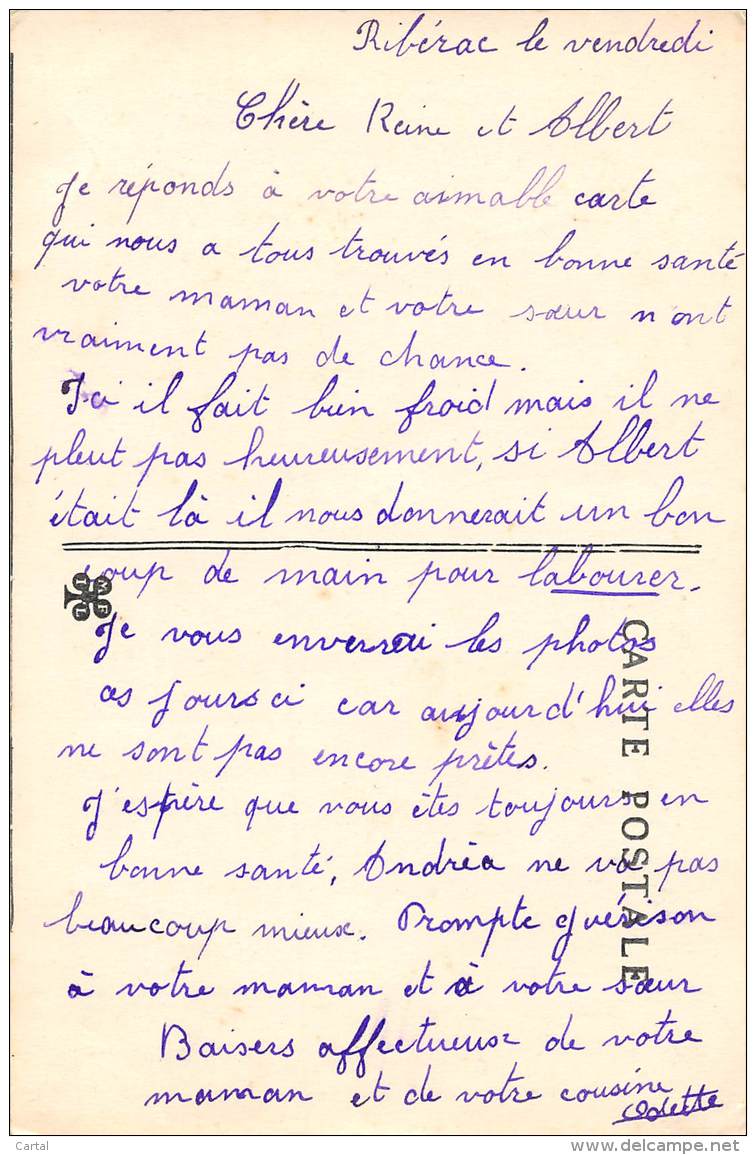 Ribérac le vendredi
Chère Reine et Albert
Je réponds à votre aimable carte
qui nous a tous trouvés en bonne santé
votre maman et votre sœur n'ont
vraiment pas de chance.
Ici il fait bien froid mais il ne
pleut pas heureusement, si Albert
était là il nous donnerait un bon
coup de main pour labourer.
Je vous enverrai les photos
ces jours ci car aujourd'hui elles
ne sont pas encore prêtes.
J'espère que vous êtes toujours en
bonne santé, Andréa ne va pas
beaucoup mieux. Prompte guérison
à votre maman et à votre sœur
Baisers affectueux de votre
maman et de votre cousine
Odette
CARTE POSTALE
Cartal
delcampe.net